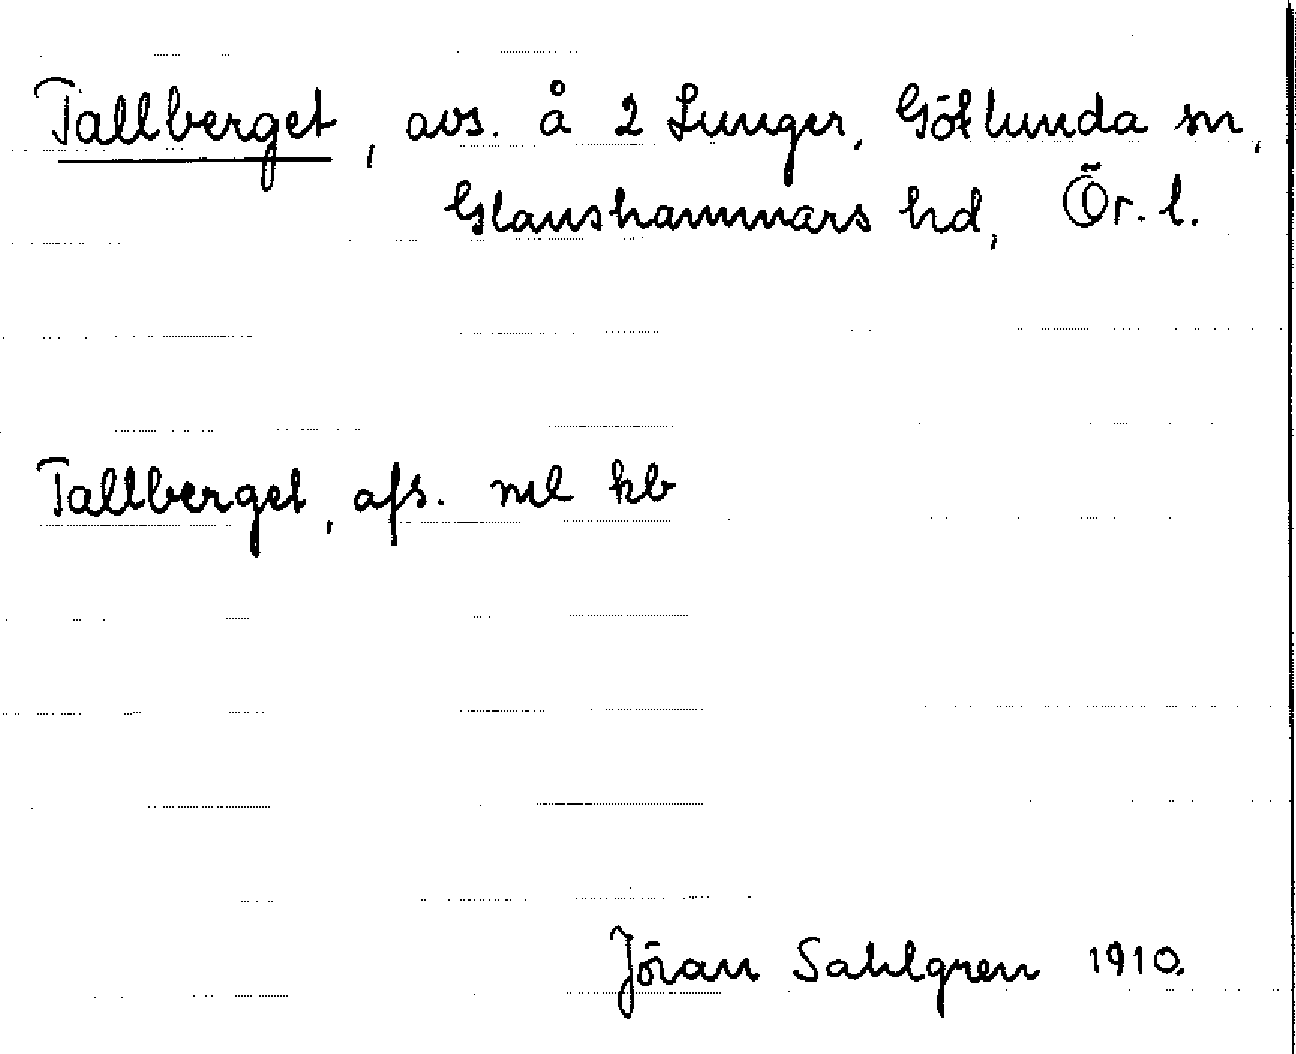 Tallberget, avs. å 2 Lunger, Götlunda sn,
Glanshammars hd, Ör. l.
Tallberget, afs. ml kb
Jöran Sahlgren 1910.